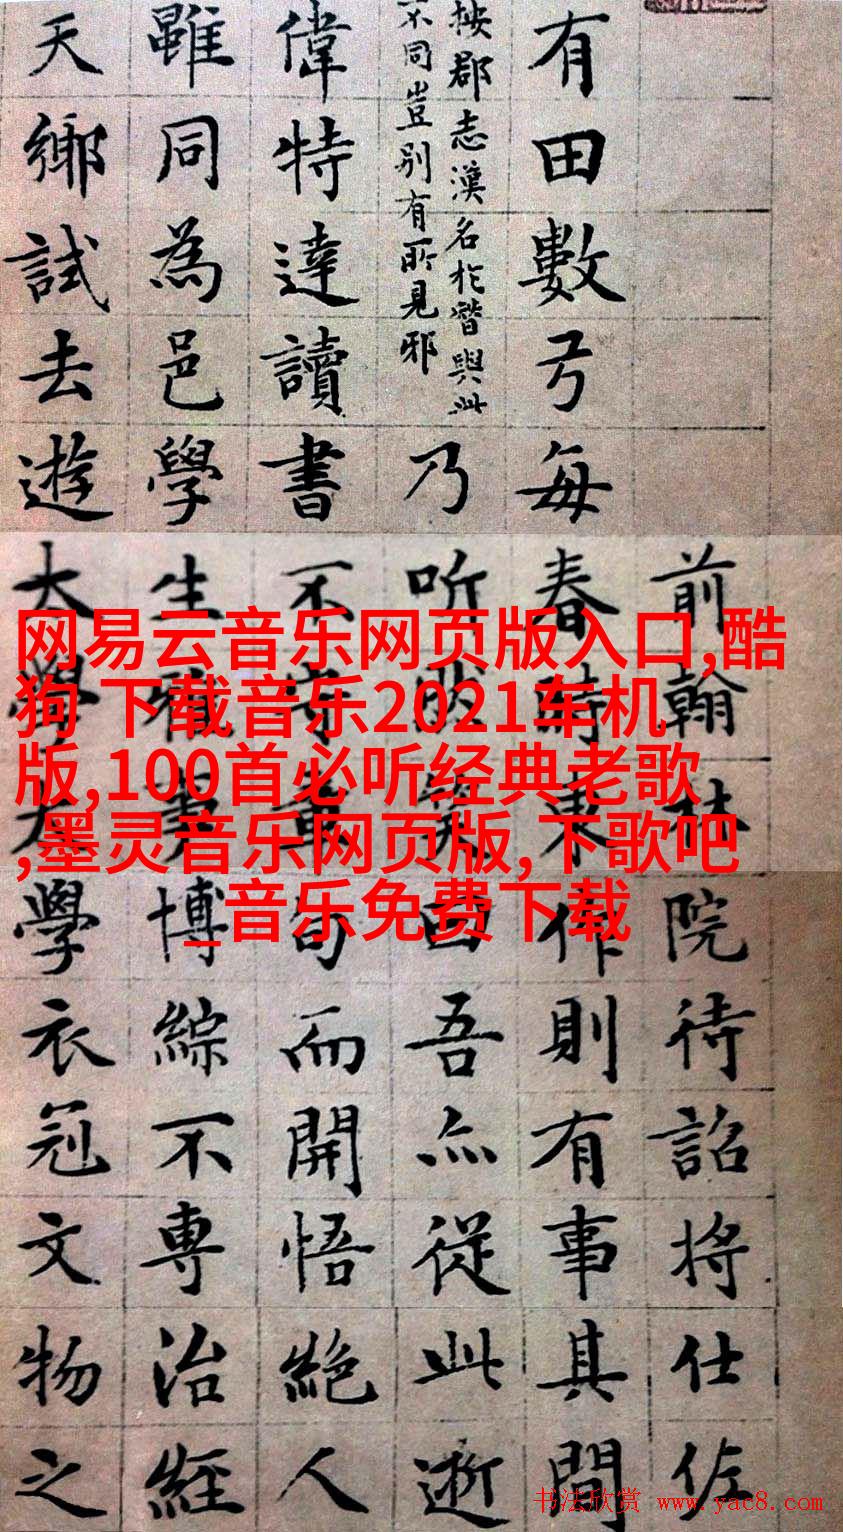 前翰林院待詔將仕佐
有田數弓每春時東作則有事其間
按郡志漢名於潛與此
不同豈別有所見邪
乃听然笑曰吾亦從此逝
偉特達讀書不守章句而開悟絕人
雖同為邑學生雅博綜不專治經
天鄉試去遊太學太學衣冠文物之
网易云音乐网页版入口,酷
狗 下载音乐2021车机
版,100首必听经典老歌
,墨灵音乐网页版,下歌吧
_音乐免费下载
书法欣赏 www.yac8.com